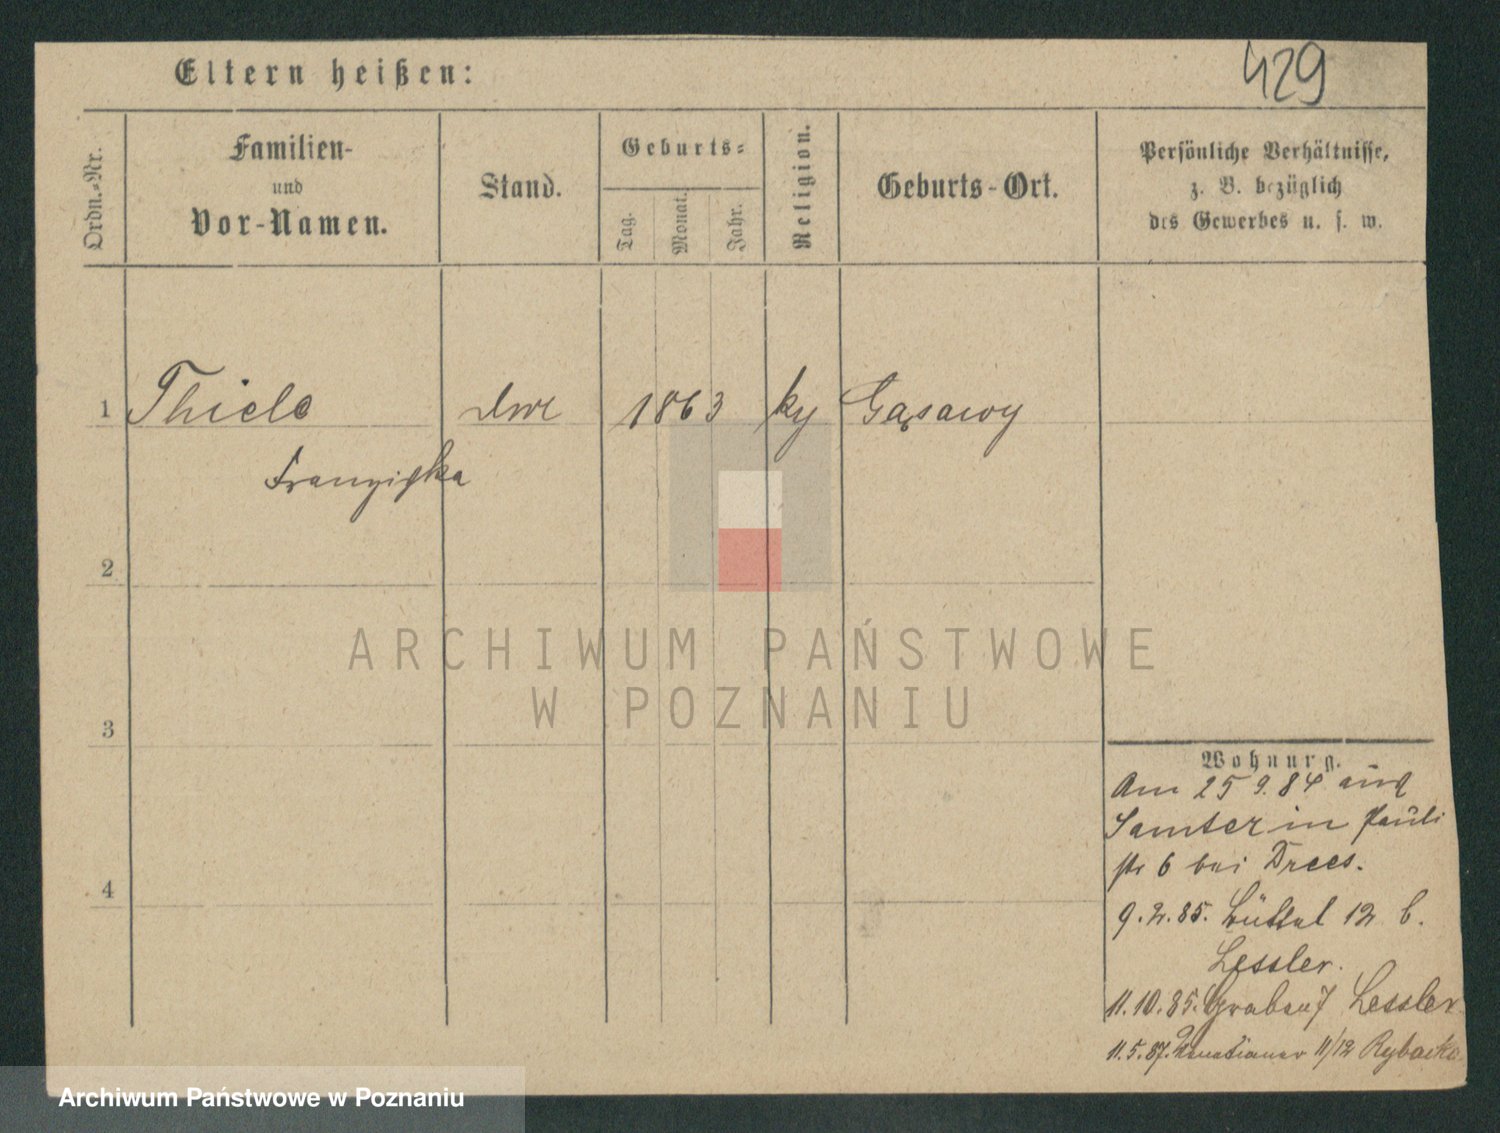 429
Eltern heißen:
Ordn.-Nr.
Familien-
und
Vor-Namen.
Stand.
Geburts-
Tag.
Monat.
Jahr.
Religion.
Geburts-Ort.
Persönliche Verhältnisse,
z. B. bezüglich
des Gewerbes u. s. w.
1 Thiele 1863 Gąsawy
Franziska
2
3
4
ARCHIWUM PAŃSTWOWE
W POZNANIU
Wohnung.
Am 25 9. 84 aus
Samter in Pauli
str 6 bei Drees.
9. 2. 85. Büttel 12 b.
Lessler.
11. 10. 85. Graben 7 Lessler
11. 5. 87. 11/12 Rybacka
Archiwum Państwowe w Poznaniu